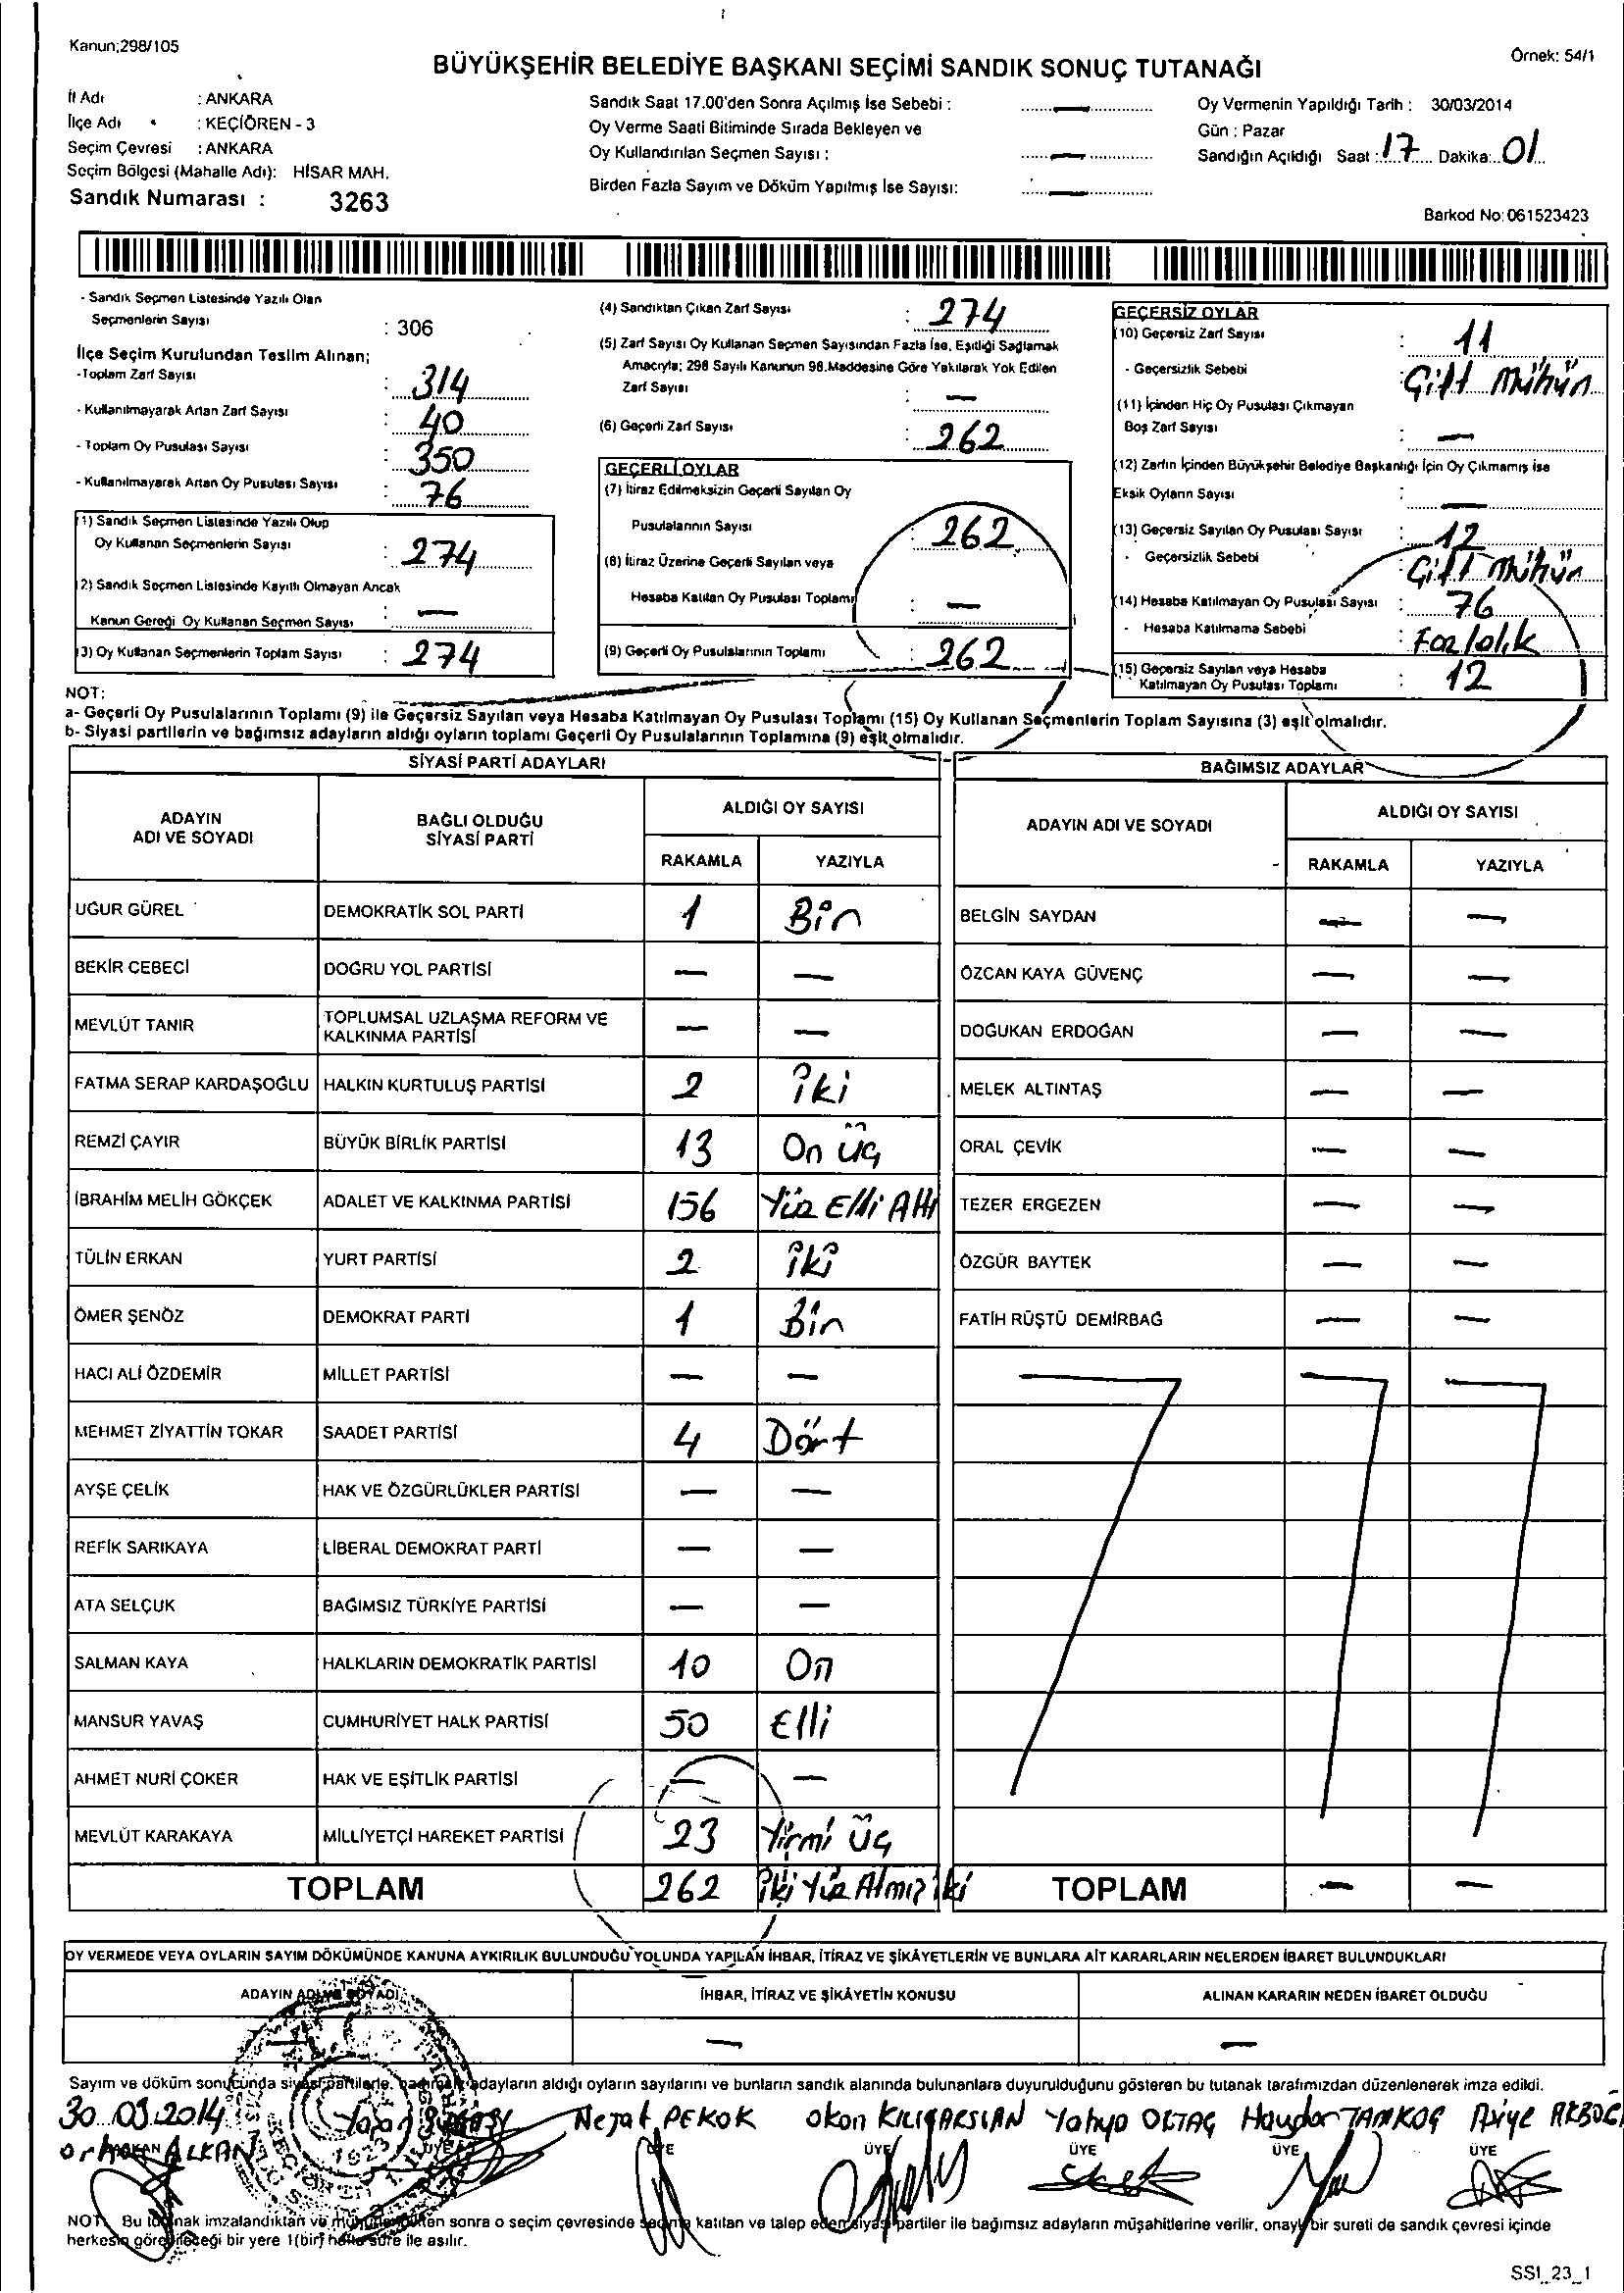 Kanun;298/105
Örnek: 54/1
BÜYÜKŞEHİR BELEDİYE BAŞKANI SEÇİMİ SANDIK SONUÇ TUTANAĞI
İl Adı : ANKARA
İlçe Adı : KEÇİÖREN - 3
Seçim Çevresi : ANKARA
Seçim Bölgesi (Mahalle Adı): HİSAR MAH.
Sandık Numarası : 3263
Sandık Saat 17.00'den Sonra Açılmış İse Sebebi : —
Oy Verme Saati Bitiminde Sırada Bekleyen ve
Oy Kullandırılan Seçmen Sayısı : —
Birden Fazla Sayım ve Döküm Yapılmış İse Sayısı: —
Oy Vermenin Yapıldığı Tarih : 30/03/2014
Gün : Pazar
Sandığın Açıldığı Saat : 17 Dakika: 01
Barkod No: 061523423
- Sandık Seçmen Listesinde Yazılı Olan
Seçmenlerin Sayısı : 306
İlçe Seçim Kurulundan Teslim Alınan;
-Toplam Zarf Sayısı : 314
- Kullanılmayarak Artan Zarf Sayısı : 40
- Toplam Oy Pusulası Sayısı : 350
- Kullanılmayarak Artan Oy Pusulası Sayısı : 76
(1) Sandık Seçmen Listesinde Yazılı Olup
Oy Kullanan Seçmenlerin Sayısı : 274
(2) Sandık Seçmen Listesinde Kayıtlı Olmayan Ancak
Kanun Gereği Oy Kullanan Seçmen Sayısı : —
(3) Oy Kullanan Seçmenlerin Toplam Sayısı : 274
(4) Sandıktan Çıkan Zarf Sayısı : 274
(5) Zarf Sayısı Oy Kullanan Seçmen Sayısından Fazla İse, Eşitliği Sağlamak
Amacıyla; 298 Sayılı Kanunun 98.Maddesine Göre Yakılarak Yok Edilen
Zarf Sayısı : —
(6) Geçerli Zarf Sayısı : 262
GEÇERLİ OYLAR
(7) İtiraz Edilmeksizin Geçerli Sayılan Oy
Pusulalarının Sayısı : 262
(8) İtiraz Üzerine Geçerli Sayılan veya
Hesaba Katılan Oy Pusulası Toplamı : —
(9) Geçerli Oy Pusulalarının Toplamı : 262
GEÇERSİZ OYLAR
(10) Geçersiz Zarf Sayısı : 11
- Geçersizlik Sebebi : Çift mühür
(11) İçinden Hiç Oy Pusulası Çıkmayan
Boş Zarf Sayısı : —
(12) Zarfın İçinden Büyükşehir Belediye Başkanlığı İçin Oy Çıkmamış ise
Eksik Oyların Sayısı : —
(13) Geçersiz Sayılan Oy Pusulası Sayısı : 12
- Geçersizlik Sebebi : Çift mühür
(14) Hesaba Katılmayan Oy Pusulası Sayısı : 76
- Hesaba Katılmama Sebebi : Fazlalık
(15) Geçersiz Sayılan veya Hesaba
Katılmayan Oy Pusulası Toplamı : 12
NOT:
a- Geçerli Oy Pusulalarının Toplamı (9) ile Geçersiz Sayılan veya Hesaba Katılmayan Oy Pusulası Toplamı (15) Oy Kullanan Seçmenlerin Toplam Sayısına (3) eşit olmalıdır.
b- Siyasi partilerin ve bağımsız adayların aldığı oyların toplamı Geçerli Oy Pusulalarının Toplamına (9) eşit olmalıdır.
SİYASİ PARTİ ADAYLARI
ADAYIN ADI VE SOYADI BAĞLI OLDUĞU SİYASİ PARTİ ALDIĞI OY SAYISI
RAKAMLA YAZIYLA
UĞUR GÜREL DEMOKRATİK SOL PARTİ 1 Bir
BEKİR CEBECİ DOĞRU YOL PARTİSİ — —
MEVLÜT TANIR TOPLUMSAL UZLAŞMA REFORM VE KALKINMA PARTİSİ — —
FATMA SERAP KARDAŞOĞLU HALKIN KURTULUŞ PARTİSİ 2 iki
REMZİ ÇAYIR BÜYÜK BİRLİK PARTİSİ 13 On üç
İBRAHİM MELİH GÖKÇEK ADALET VE KALKINMA PARTİSİ 156 Yüz Elli Altı
TÜLİN ERKAN YURT PARTİSİ 2 iki
ÖMER ŞENÖZ DEMOKRAT PARTİ 1 Bir
HACI ALİ ÖZDEMİR MİLLET PARTİSİ — —
MEHMET ZİYATTİN TOKAR SAADET PARTİSİ 4 Dört
AYŞE ÇELİK HAK VE ÖZGÜRLÜKLER PARTİSİ — —
REFİK SARIKAYA LİBERAL DEMOKRAT PARTİ — —
ATA SELÇUK BAĞIMSIZ TÜRKİYE PARTİSİ — —
SALMAN KAYA HALKLARIN DEMOKRATİK PARTİSİ 10 On
MANSUR YAVAŞ CUMHURİYET HALK PARTİSİ 50 Elli
AHMET NURİ ÇOKER HAK VE EŞİTLİK PARTİSİ — —
MEVLÜT KARAKAYA MİLLİYETÇİ HAREKET PARTİSİ 23 Yirmi üç
TOPLAM 262 iki Yüz Atmış iki
BAĞIMSIZ ADAYLAR
ADAYIN ADI VE SOYADI ALDIĞI OY SAYISI
RAKAMLA YAZIYLA
BELGİN SAYDAN — —
ÖZCAN KAYA GÜVENÇ — —
DOĞUKAN ERDOĞAN — —
MELEK ALTINTAŞ — —
ORAL ÇEVİK — —
TEZER ERGEZEN — —
ÖZGÜR BAYTEK — —
FATİH RÜŞTÜ DEMİRBAĞ — —
TOPLAM — —
OY VERMEDE VEYA OYLARIN SAYIM DÖKÜMÜNDE KANUNA AYKIRILIK BULUNDUĞU YOLUNDA YAPILAN İHBAR, İTİRAZ VE ŞİKÂYETLERİN VE BUNLARA AİT KARARLARIN NELERDEN İBARET BULUNDUKLARI
ADAYIN ADI VE SOYADI İHBAR, İTİRAZ VE ŞİKÂYETİN KONUSU ALINAN KARARIN NEDEN İBARET OLDUĞU
— —
Sayım ve döküm sonucunda siyasi partilerle, bağımsız adayların aldığı oyların sayılarını ve bunların sandık alanında bulunanlara duyurulduğunu gösteren bu tutanak tarafımızdan düzenlenerek imza edildi.
30.03.2014 Nejat PEKOK okan KILIÇARSLAN Yahya OKTAÇ Haydar TAMKOÇ
orhan ALKAN
BAŞKAN ÜYE ÜYE ÜYE ÜYE ÜYE ÜYE
NOT: Bu tutanak imzalandıktan ve mühürlendikten sonra o seçim çevresinde seçime katılan ve talep eden siyasi partiler ile bağımsız adayların müşahitlerine verilir, onaylı bir sureti de sandık çevresi içinde
herkesin görebileceği bir yere 1(bir) hafta süre ile asılır.
SSI_23_1